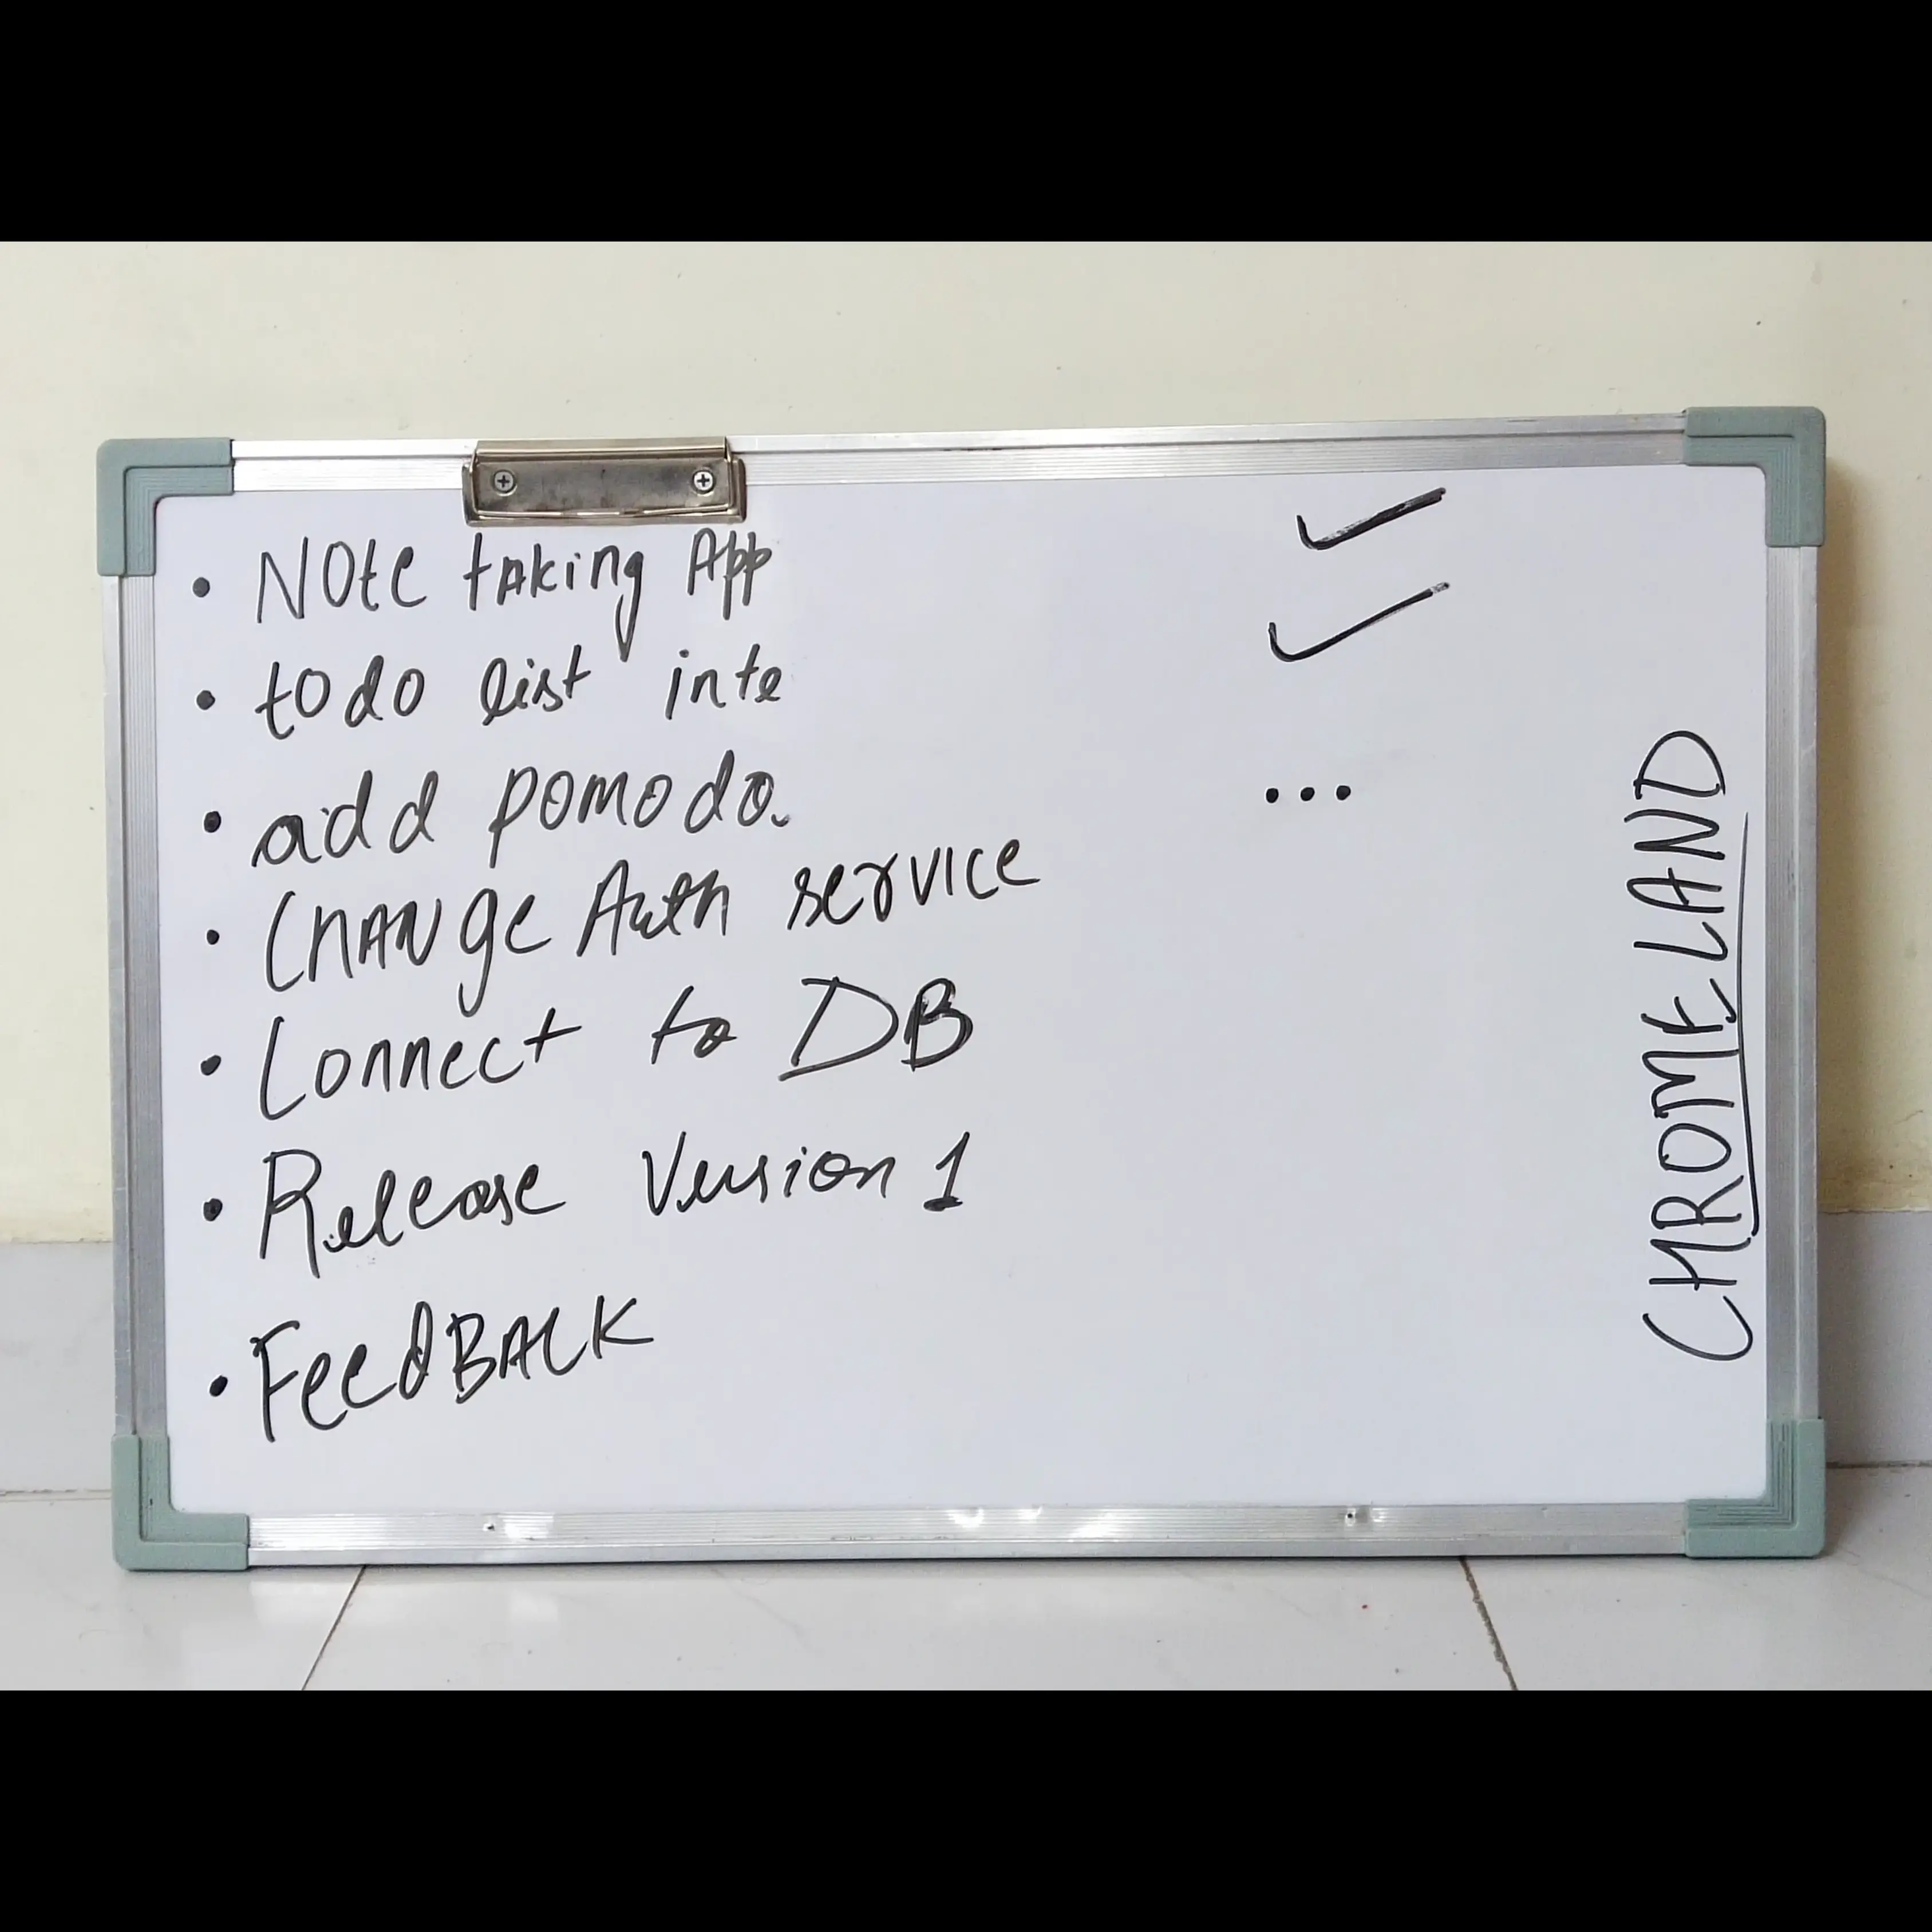 • NOte tAking App
• todo list inte
• add pomodo.
• CHANge Auth service
• Connect to DB
• Release Version 1
• FeedBACK
✓
✓
...
CHROME LAND